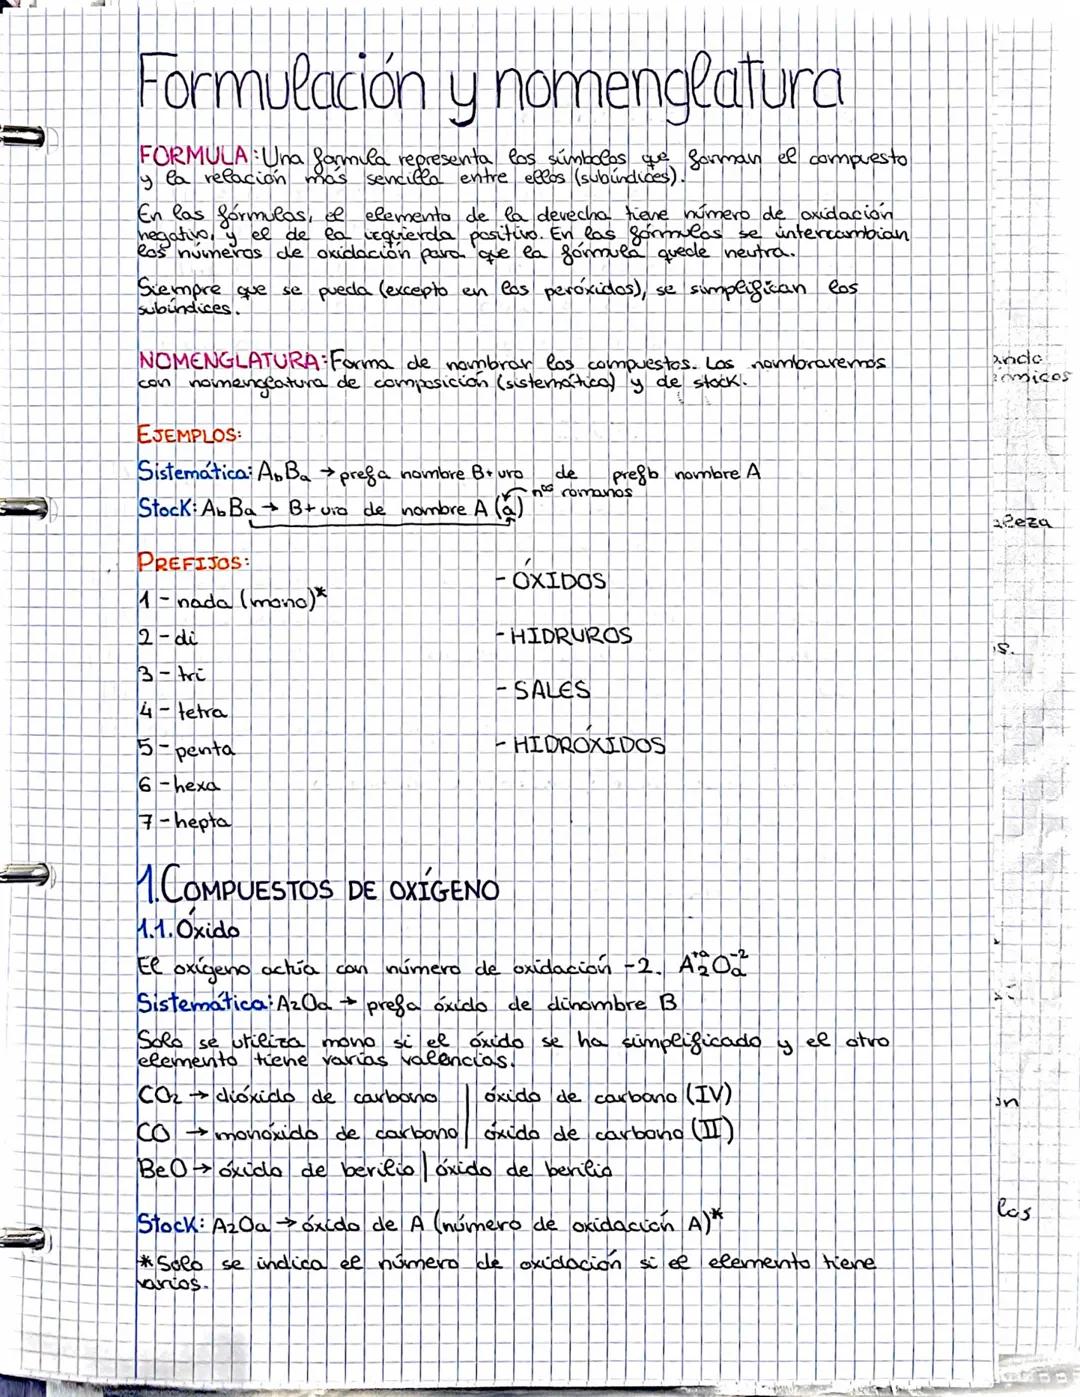 Formulación y nomenglatura
FORMULA: Una formula representa los símbolos que forman el compuesto
y la relación más sencilla entre ellos (subíndices).
En las fórmulas, el elemento de la derecha tiene número de oxidación
negativo, y el de la izquierda positivo. En las fórmulas se intercambian
los números de oxidación para que la fórmula quede neutra.
Siempre que se pueda (excepto en los peróxidos), se simplifican los
subíndices.
NOMENGLATURA: Forma de nombrar los compuestos. Los nombraremos
con nomenglatura de composición (sistemática) y de stock.
ando
ómicos
EJEMPLOS:
Sistemática: AbBa → prefa nombre B+uro de prefb nombre A
nos romanos
Stock: AbBa → B+uro de nombre A (a)
aleza
PREFIJOS:
1 - nada (mono)*
2 - di
3 - tri
4 - tetra
5 - penta
6 - hexa
7 - hepta
- ÓXIDOS
- HIDRUROS
- SALES
- HIDRÓXIDOS
s.
1. COMPUESTOS DE OXÍGENO
1.1. Óxido
El oxígeno actúa con número de oxidación -2. A₂⁺ᵃOₐ⁻²
Sistemática: A₂Oa → prefa óxido de dinombre B
Solo se utiliza mono si el óxido se ha simplificado y el otro
elemento tiene varias valencias.
CO₂ → dióxido de carbono | óxido de carbono (IV)
CO → monóxido de carbono | óxido de carbono (II)
BeO → óxido de berilio | óxido de berilio
Stock: A₂Oa → óxido de A (número de oxidación A)*
los
* Solo se indica el número de oxidación si el elemento tiene
varios.